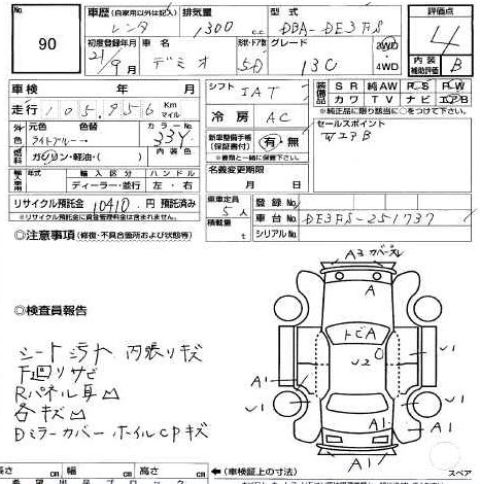 No. 90
車歴 (自家用以外は記入) レンタ 排気量 1300 c.c. 型式 DBA-DE3FS 評価点 4
初度登録年月 21年9月 車名 デミオ 形状・ドア数 5D グレード 13C 2WD 4WD 内装補助評価 B
車検 年 月 シフト IAT 装備品 SR 純AW PS PW
カワ TV ナビ エアB
走行 105,956 Km マイル 冷房 AC ※純正品に限り該当に○をつけて下さい。
外色 元色 ライトブルー 色替 カラーNo. 33Y 内装色 新車整備手帳(保証書付) 有・無 ※書類と一緒に保管下さい。 セールスポイント
WエアB
燃料 ガソリン・軽油・( ) 名義変更期限 月 日
輸入車用 年式 輸入区分 ディーラー・並行 ハンドル 左・右
リサイクル預託金 10410 円 預託済み 乗車定員 5人 登録No.
※リサイクル預託金に資金管理料金は含まれません。 積載量 t 車台No. DE3FS-251737
シリアルNo.
◎注意事項 (修復・不具合箇所および状態等)
A3 カバー
A
◎検査員報告
トビA
シートシラナ 内張りキズ
U2
U1
下回りサビ
A1
Rパネル鼻凹
U1
U1
各キズ凹
A1
A1
Dミラーカバー ホイルCPキズ
A1
長さ cm 幅 cm 高さ cm ←(車検証上の寸法) スペア
希望出品ブロック